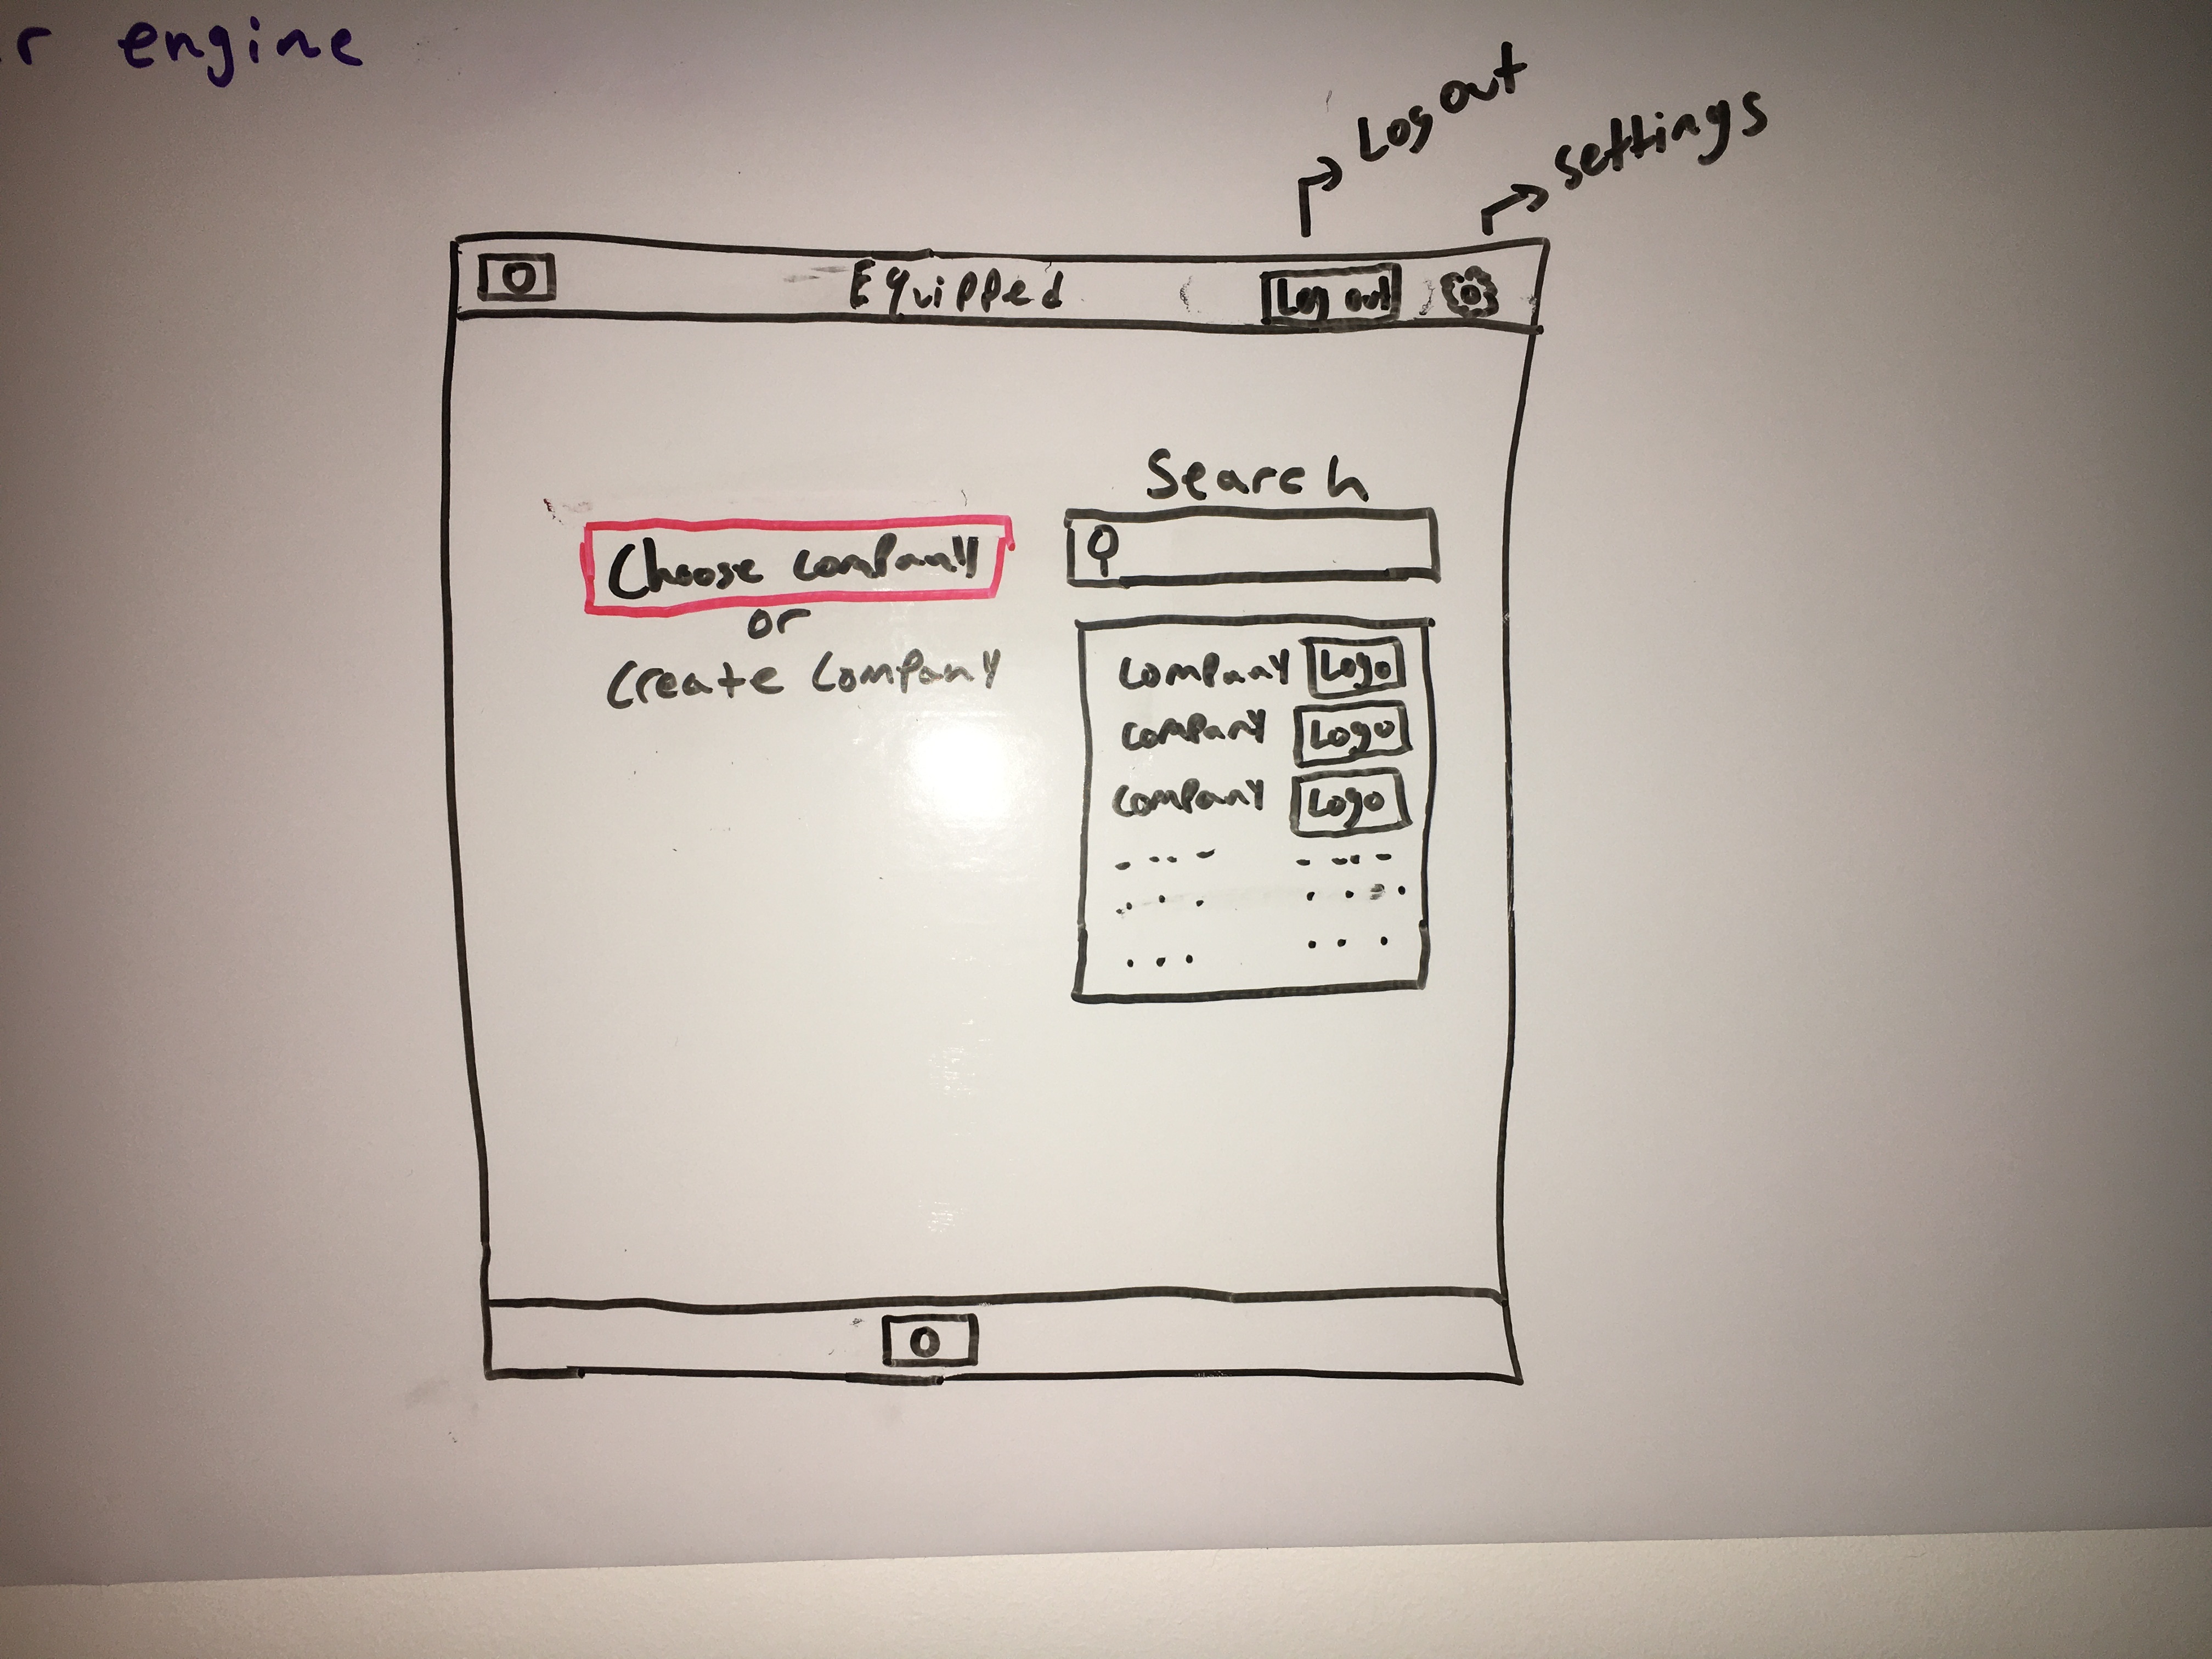 r engine
Log out
settings
O
Equipped
Log out
Search
Choose company
or
create company
company Logo
company Logo
company Logo
O